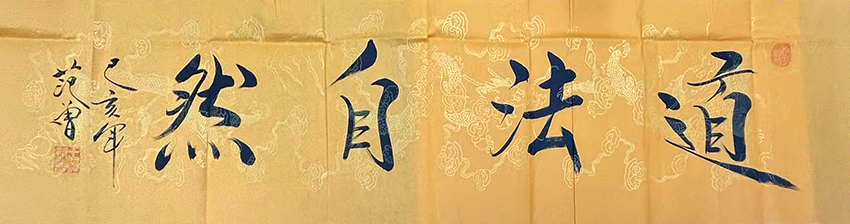 道法自然
己亥年
范曾